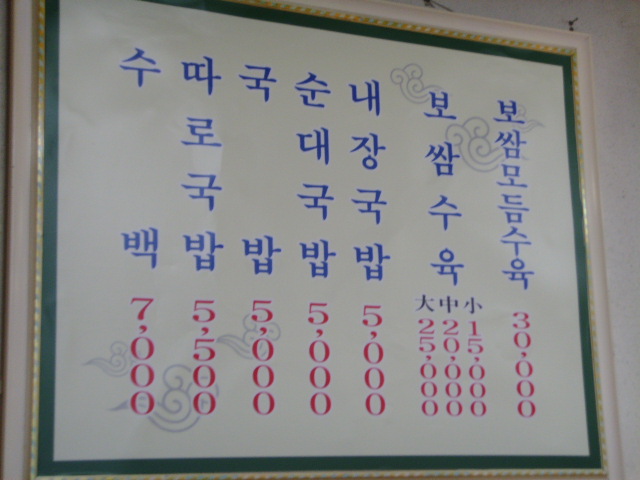 수백 7,000
따로국밥 5,500
국밥 5,000
순대국밥 5,000
내장국밥 5,000
보쌈수육 大 25,000 中 20,000 小 15,000
보쌈모듬수육 30,000